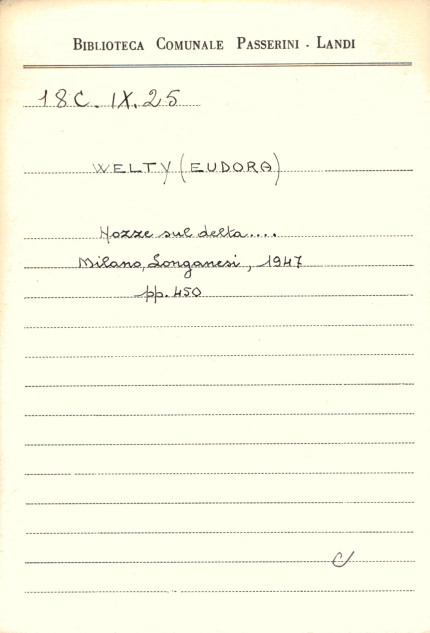 BIBLIOTECA COMUNALE PASSERINI - LANDI
18C. IX. 25
WELTY (EUDORA)
Nozze sul delta....
Milano, Longanesi, 1947
pp. 450